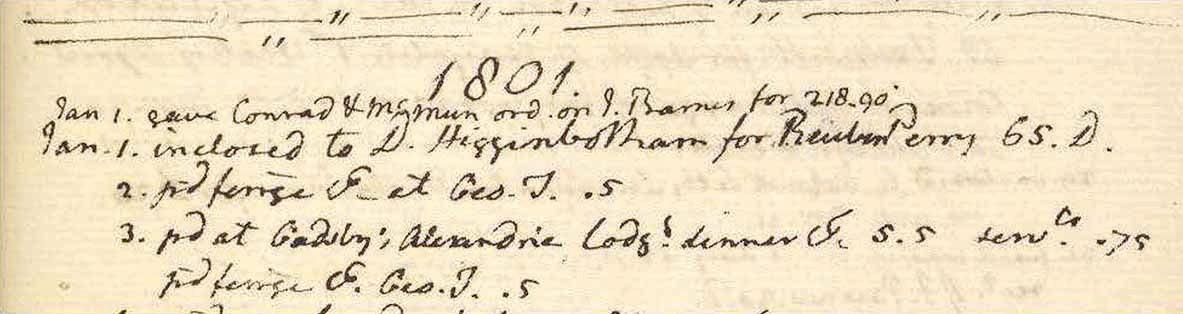 1801.
Jan 1. gave Conrad & McMun ord. on J. Barnes for 218.90
Jan. 1. inclosed to D. Higginbotham for Reuben Perry 65. D.
2. pd ferrge &c at Geo. T. .5
3. pd at Gadsby's Alexandria lodgs dinner &c. 5.5 servts. .75
pd ferrge &c. Geo. T. .5